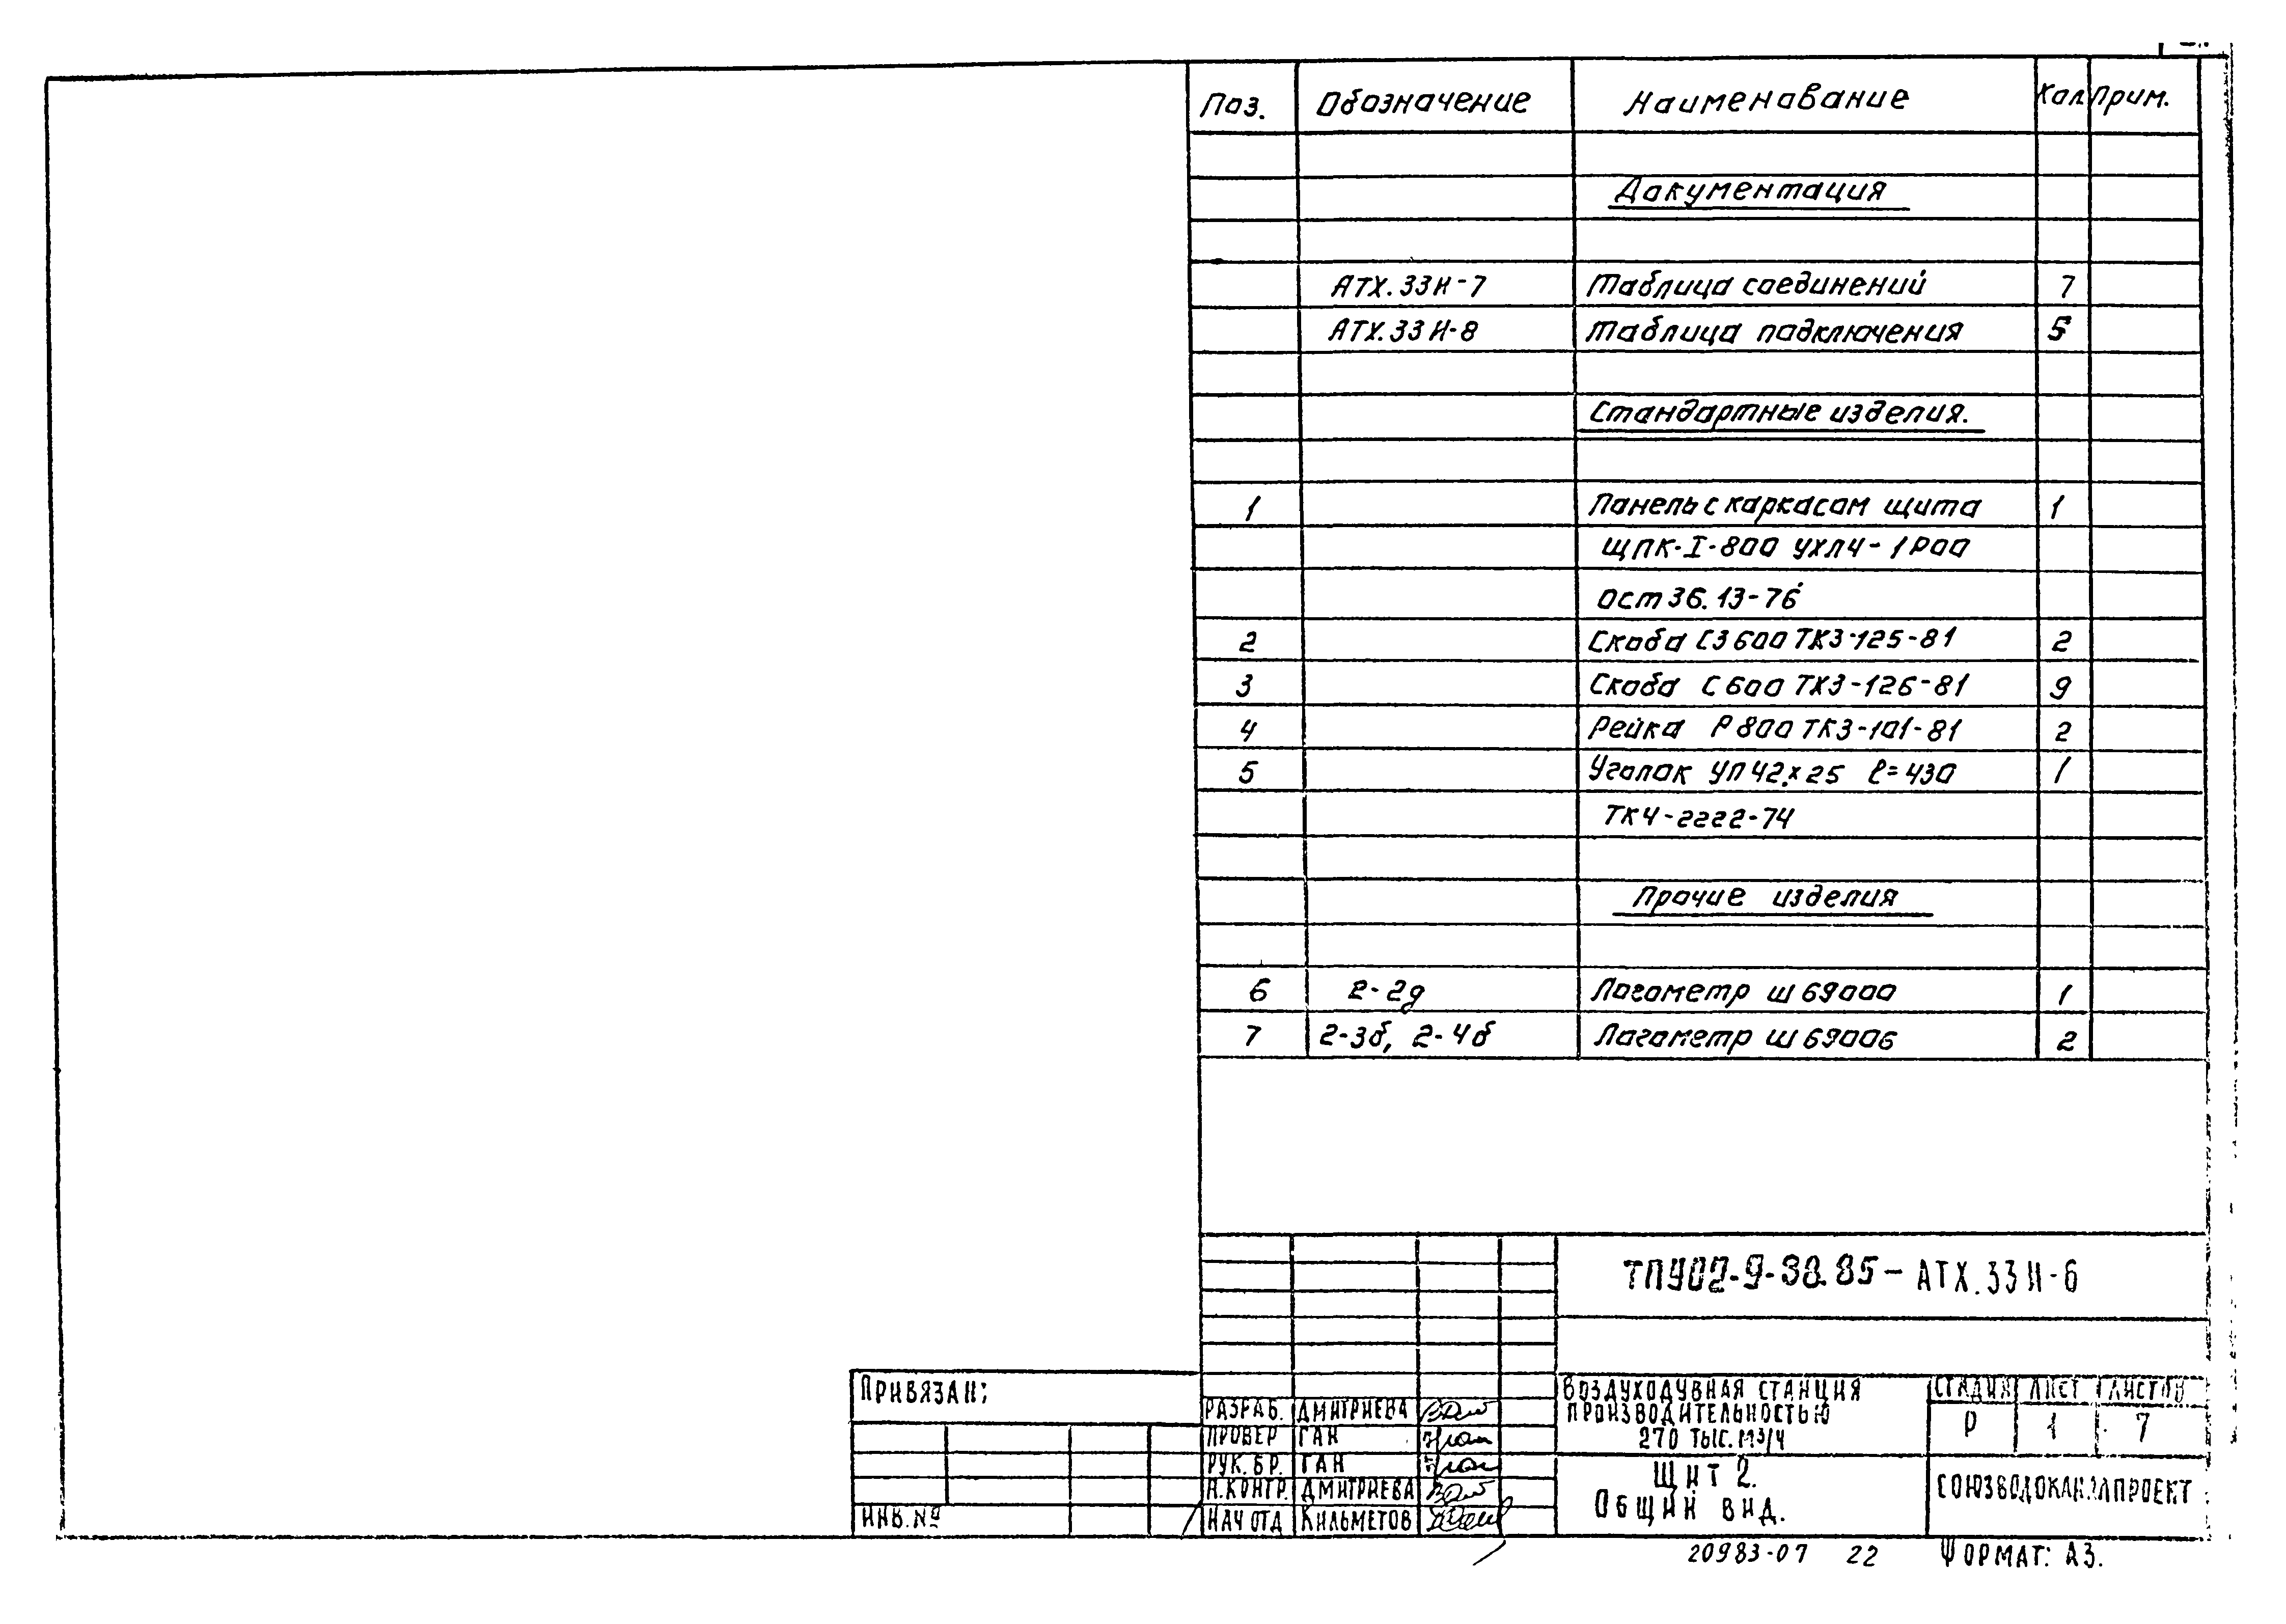 Поз. Обозначение Наименование Кол. Прим.
Документация
АТХ.33Н-7 Таблица соединений 7
АТХ.33Н-8 Таблица подключения 5
Стандартные изделия.
1 Панель с каркасом щита 1
ЩПК-I-800 УХЛ4-1Р00
ОСТ 36.13-76
2 Скоба С3 600 ТК3-125-81 2
3 Скоба С 600 ТК3-126-81 9
4 Рейка Р 800 ТК3-101-81 2
5 Уголок УП 42×25 ℓ=430 1
ТК4-2222-74
Прочие изделия
6 2-2д Логометр Ш 69000 1
7 2-3б, 2-4б Логометр Ш 69006 2
ТП902-9-38.85-АТХ.33Н-6
ПРИВЯЗАН:
ИНВ.№
РАЗРАБ. ДМИТРИЕВА
ПРОВЕР ГАН
РУК.БР. ГАН
Н.КОНТР. ДМИТРИЕВА
НАЧ ОТД КИЛЬМЕТОВ
ВОЗДУХОДУВНАЯ СТАНЦИЯ
ПРОИЗВОДИТЕЛЬНОСТЬЮ
270 ТЫС. М3/Ч
СТАДИЯ ЛИСТ ЛИСТОВ
Р 1 7
ЩИТ 2.
ОБЩИЙ ВИД.
СОЮЗВОДОКАНАЛПРОЕКТ
20983-07 22 ФОРМАТ: А3.